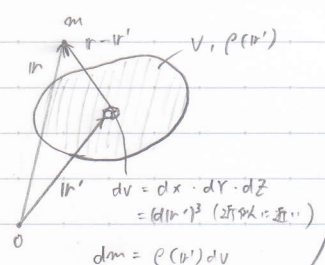 m
𝕣 - 𝕣'
V, ρ(𝕣')
𝕣
𝕣'
dv = dx・dY・dZ
= (d𝕣')³ (近似に近い)
0
dm = ρ(𝕣')dv